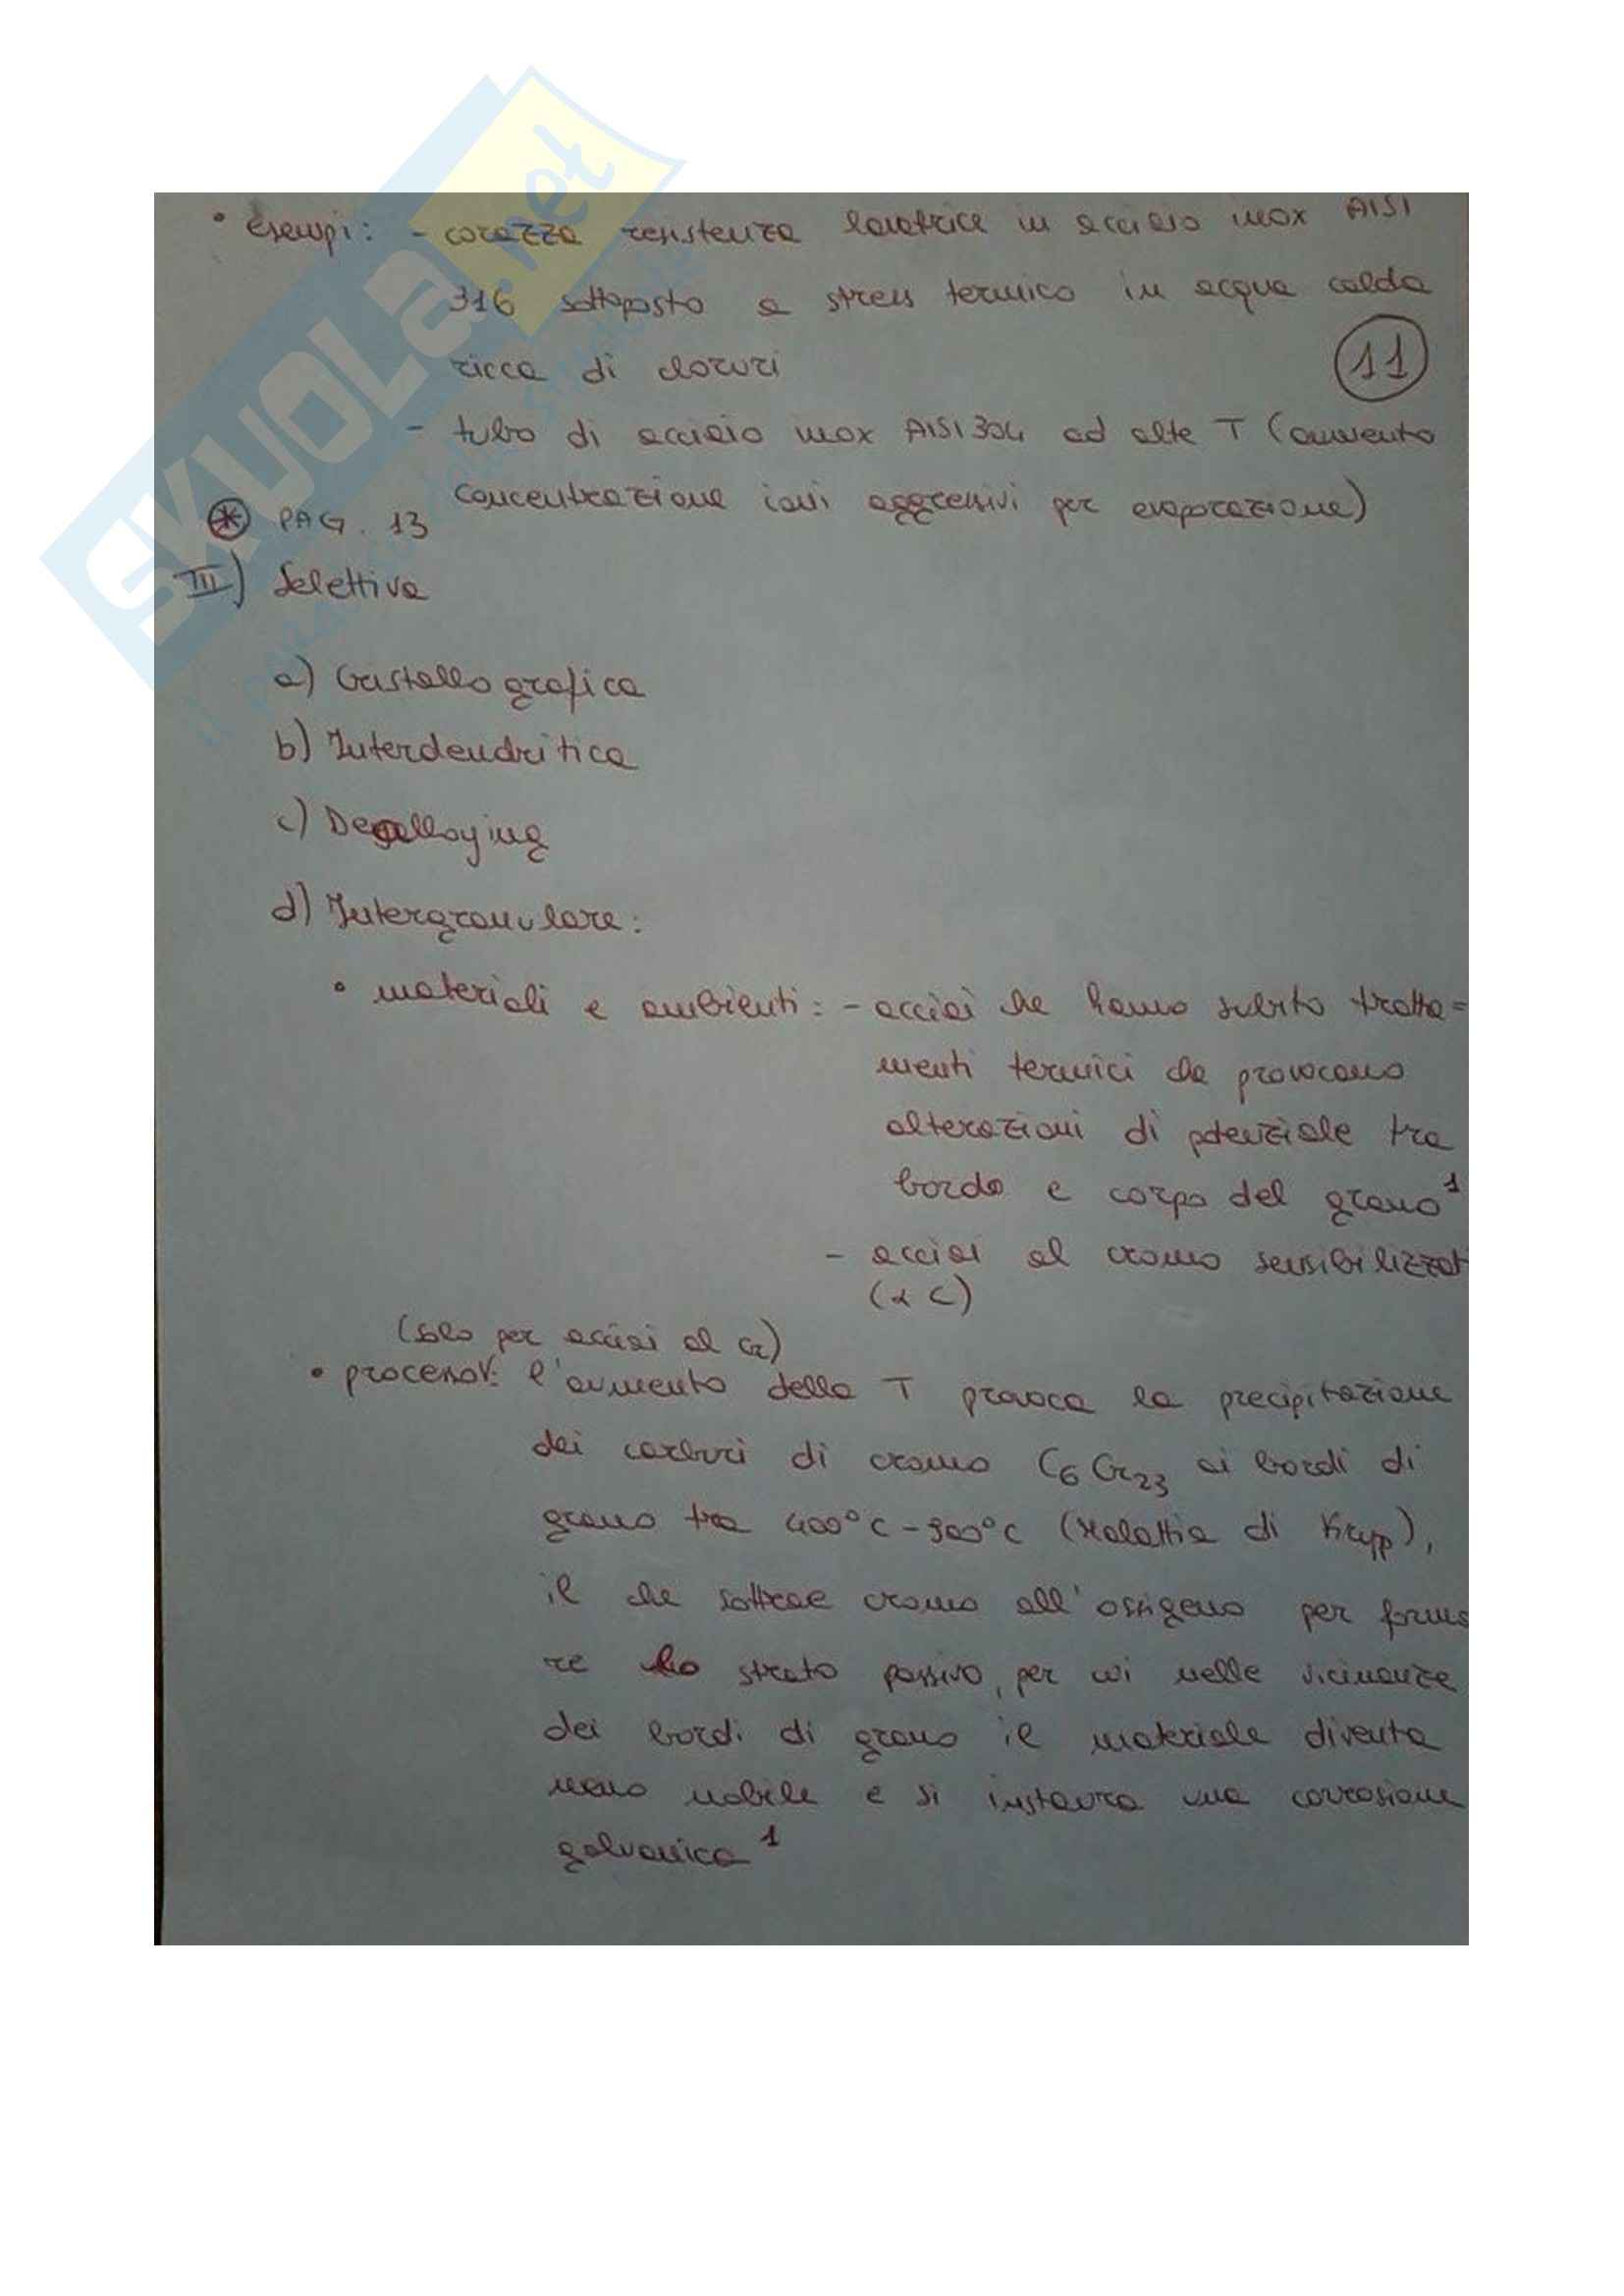 • esempi: - corazza resistenza lavatrice in acciaio inox AISI
316 sottoposto a stress termico in acqua calda
ricca di cloruri
11
- tubo di acciaio inox AISI 304 ad alte T (aumento
concentrazione ioni aggressivi per evaporazione)
* PAG. 13
III) Selettiva
a) Cristallografica
b) Interdendritica
c) Dealloying
d) Intergranulare:
• materiali e ambienti: - acciai che hanno subito tratta=
menti termici che provocano
alterazioni di potenziale tra
bordo e corpo del grano¹
- acciai al cromo sensibilizzat
(α C)
(solo per acciai al Cr)
• processo: l'aumento della T provoca la precipitazione
dei carburi di cromo C₆Cr₂₃ ai bordi di
grano tra 400°C-900°C (Malattia di Krupp),
il che sottrae cromo all'ossigeno per forma
re lo strato passivo, per cui nelle vicinanze
dei bordi di grano il materiale diventa
meno nobile e si instaura una corrosione
galvanica¹
SKUOLA.net